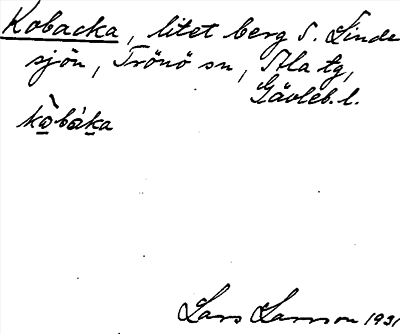 Kobacka, litet berg S. Linde
sjön, Trönö sn, Ala tg,
Gävleb. l.
kòbáka
Lars Larsson 1931